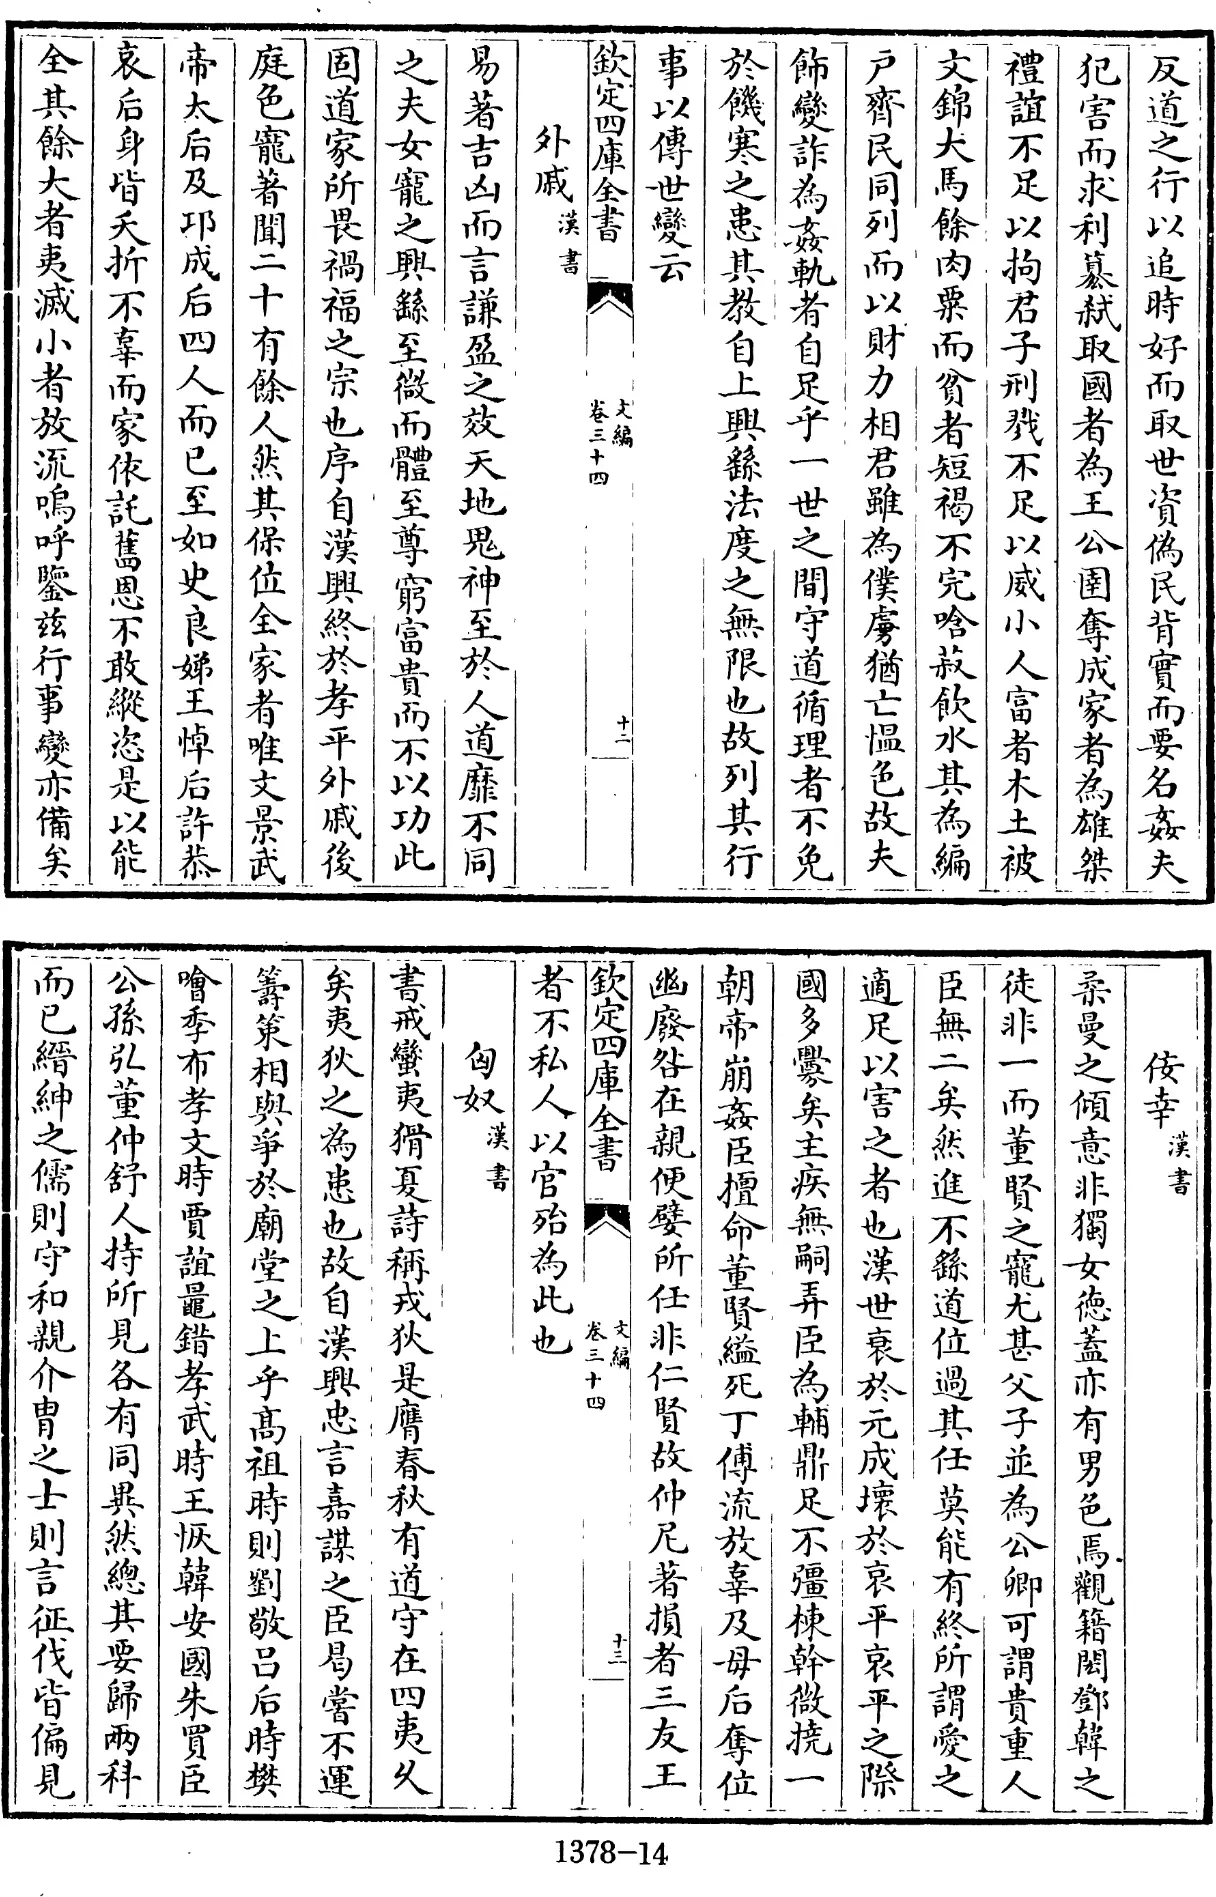 反道之行以追時好而取世資偽民背實而要名姦夫
犯害而求利簒弑取國者為王公圉奪成家者為雄桀
禮誼不足以拘君子刑戮不足以威小人富者木土被
文錦犬馬餘肉粟而貧者短褐不完唅菽飲水其為編
戸齊民同列而以財力相君雖為僕虜猶亡愠色故夫
飾變詐為姦軌者自足乎一世之間守道循理者不免
於饑寒之患其教自上興繇法度之無限也故列其行
事以傳世變云
欽定四庫全書
文編
卷三十四
十二
外戚漢書
易著吉凶而言謙盈之效天地鬼神至於人道靡不同
之夫女寵之興繇至微而體至尊窮富貴而不以功此
固道家所畏禍福之宗也序自漢興終於孝平外戚後
庭色寵著聞二十有餘人然其保位全家者唯文景武
帝太后及邛成后四人而已至如史良娣王悼后許恭
哀后身皆夭折不辜而家依託舊恩不敢縱恣是以能
全其餘大者夷滅小者放流嗚呼鑒兹行事變亦備矣
佞幸漢書
柔曼之傾意非獨女徳蓋亦有男色焉觀籍閎鄧韓之
徒非一而董賢之寵尤甚父子並為公卿可謂貴重人
臣無二矣然進不繇道位過其任莫能有終所謂愛之
適足以害之者也漢世衰於元成壞於哀平哀平之際
國多釁矣主疾無嗣弄臣為輔鼎足不彊棟幹微撓一
朝帝崩姦臣擅命董賢縊死丁傅流放辜及母后奪位
幽廢咎在親便嬖所任非仁賢故仲尼著損者三友王
欽定四庫全書
文編
卷三十四
十三
者不私人以官殆為此也
匈奴漢書
書戒蠻夷猾夏詩稱戎狄是膺春秋有道守在四夷乆
矣夷狄之為患也故自漢興忠言嘉謀之臣曷嘗不運
籌策相與爭於廟堂之上乎髙祖時則劉敬吕后時樊
噲季布孝文時賈誼鼂錯孝武時王恢韓安國朱買臣
公孫弘董仲舒人持所見各有同異然總其要歸兩科
而已縉紳之儒則守和親介胄之士則言征伐皆偏見
1378-14